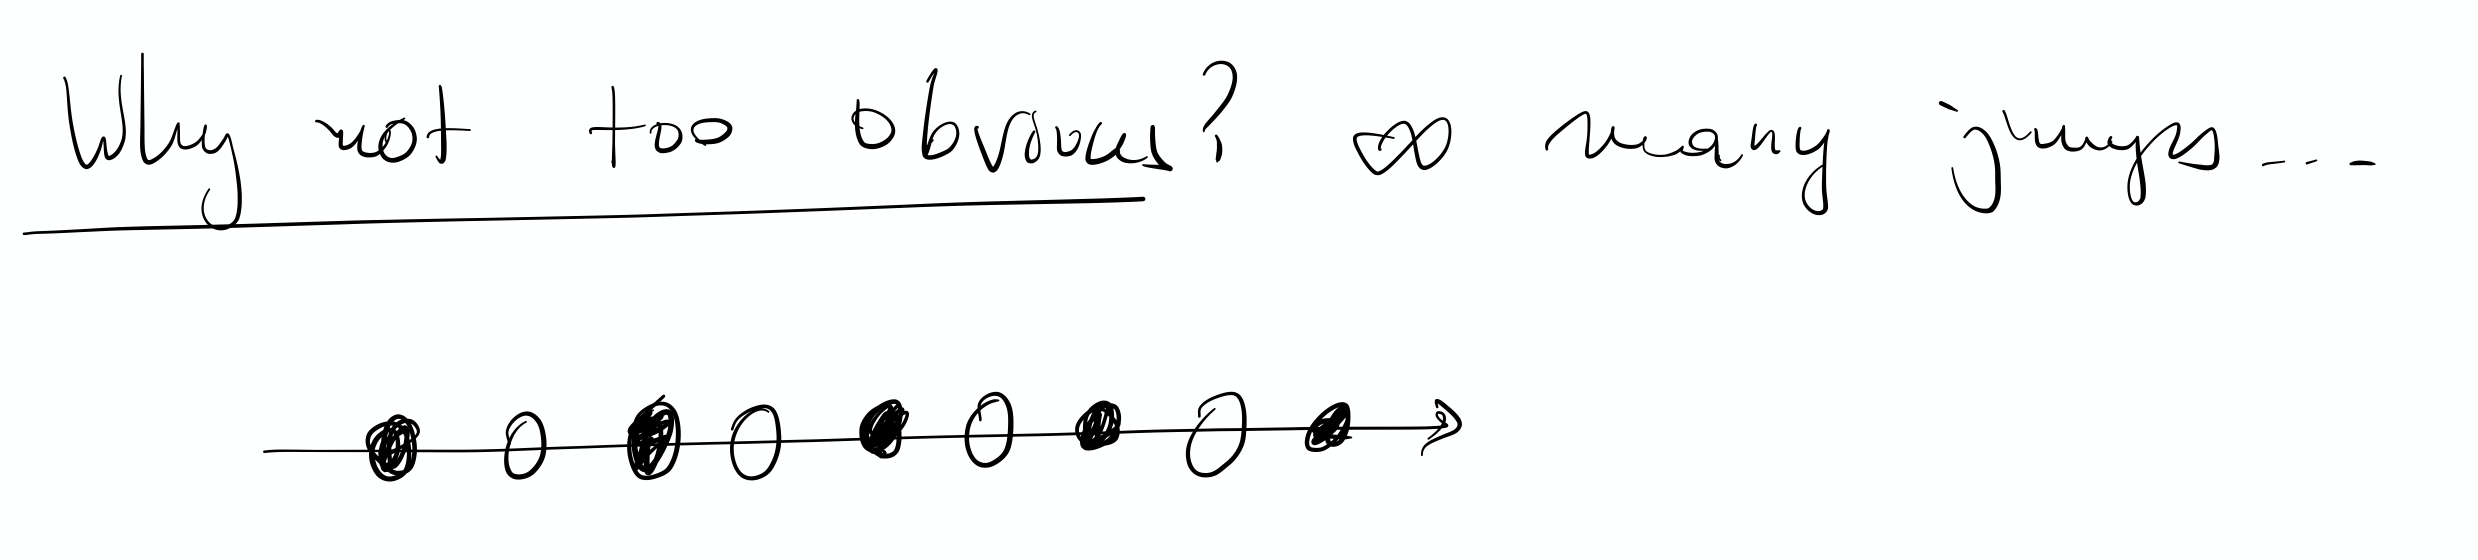 Why not too obvious? ∞ many jumps ---